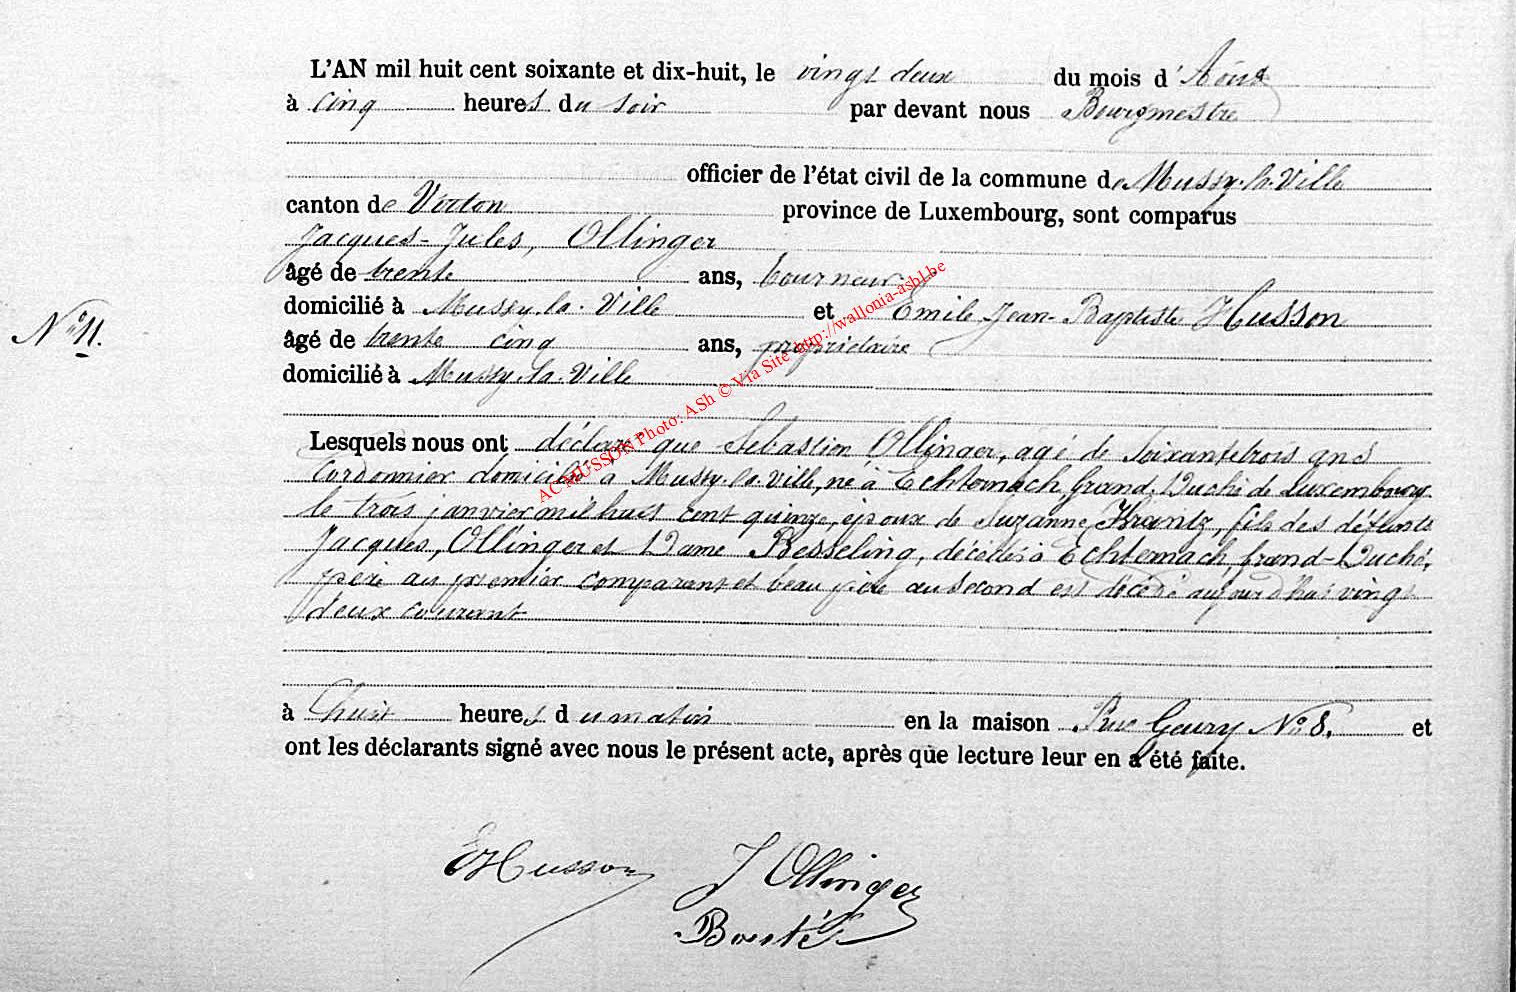 L'AN mil huit cent soixante et dix-huit, le vingt deux du mois d'Août
à cinq heures du soir par devant nous Bourgmestre
officier de l'état civil de la commune de Mussy-la-Ville
canton de Virton province de Luxembourg, sont comparus
Jacques-Jules, Ollinger
âgé de trente ans, tourneur
domicilié à Mussy-la-Ville et Emile Jean-Baptiste Husson
N° 11.
âgé de trente cinq ans, propriétaire
domicilié à Mussy-la-Ville
Lesquels nous ont déclaré que Sébastien Ollinger, agé de soixante trois ans
cordonnier domicilié à Mussy-la-Ville, né à Echternach, Grand-Duché de Luxembourg
le trois janvier mil huit cent quinze, époux de Suzanne, Krantz, fils des défunts
Jacques, Ollinger et Dame Besseling, décédés à Echternach, Grand-Duché,
père au premier comparant et beau père au second est décédé aujourd'hui vingt
deux courant
à huit heures du matin en la maison Rue N° 8. et
ont les déclarants signé avec nous le présent acte, après que lecture leur en a été faite.
EHusson J Ollinger
ACMUSSON Photo: ASh © Via Site http://wallonia-asbl.be